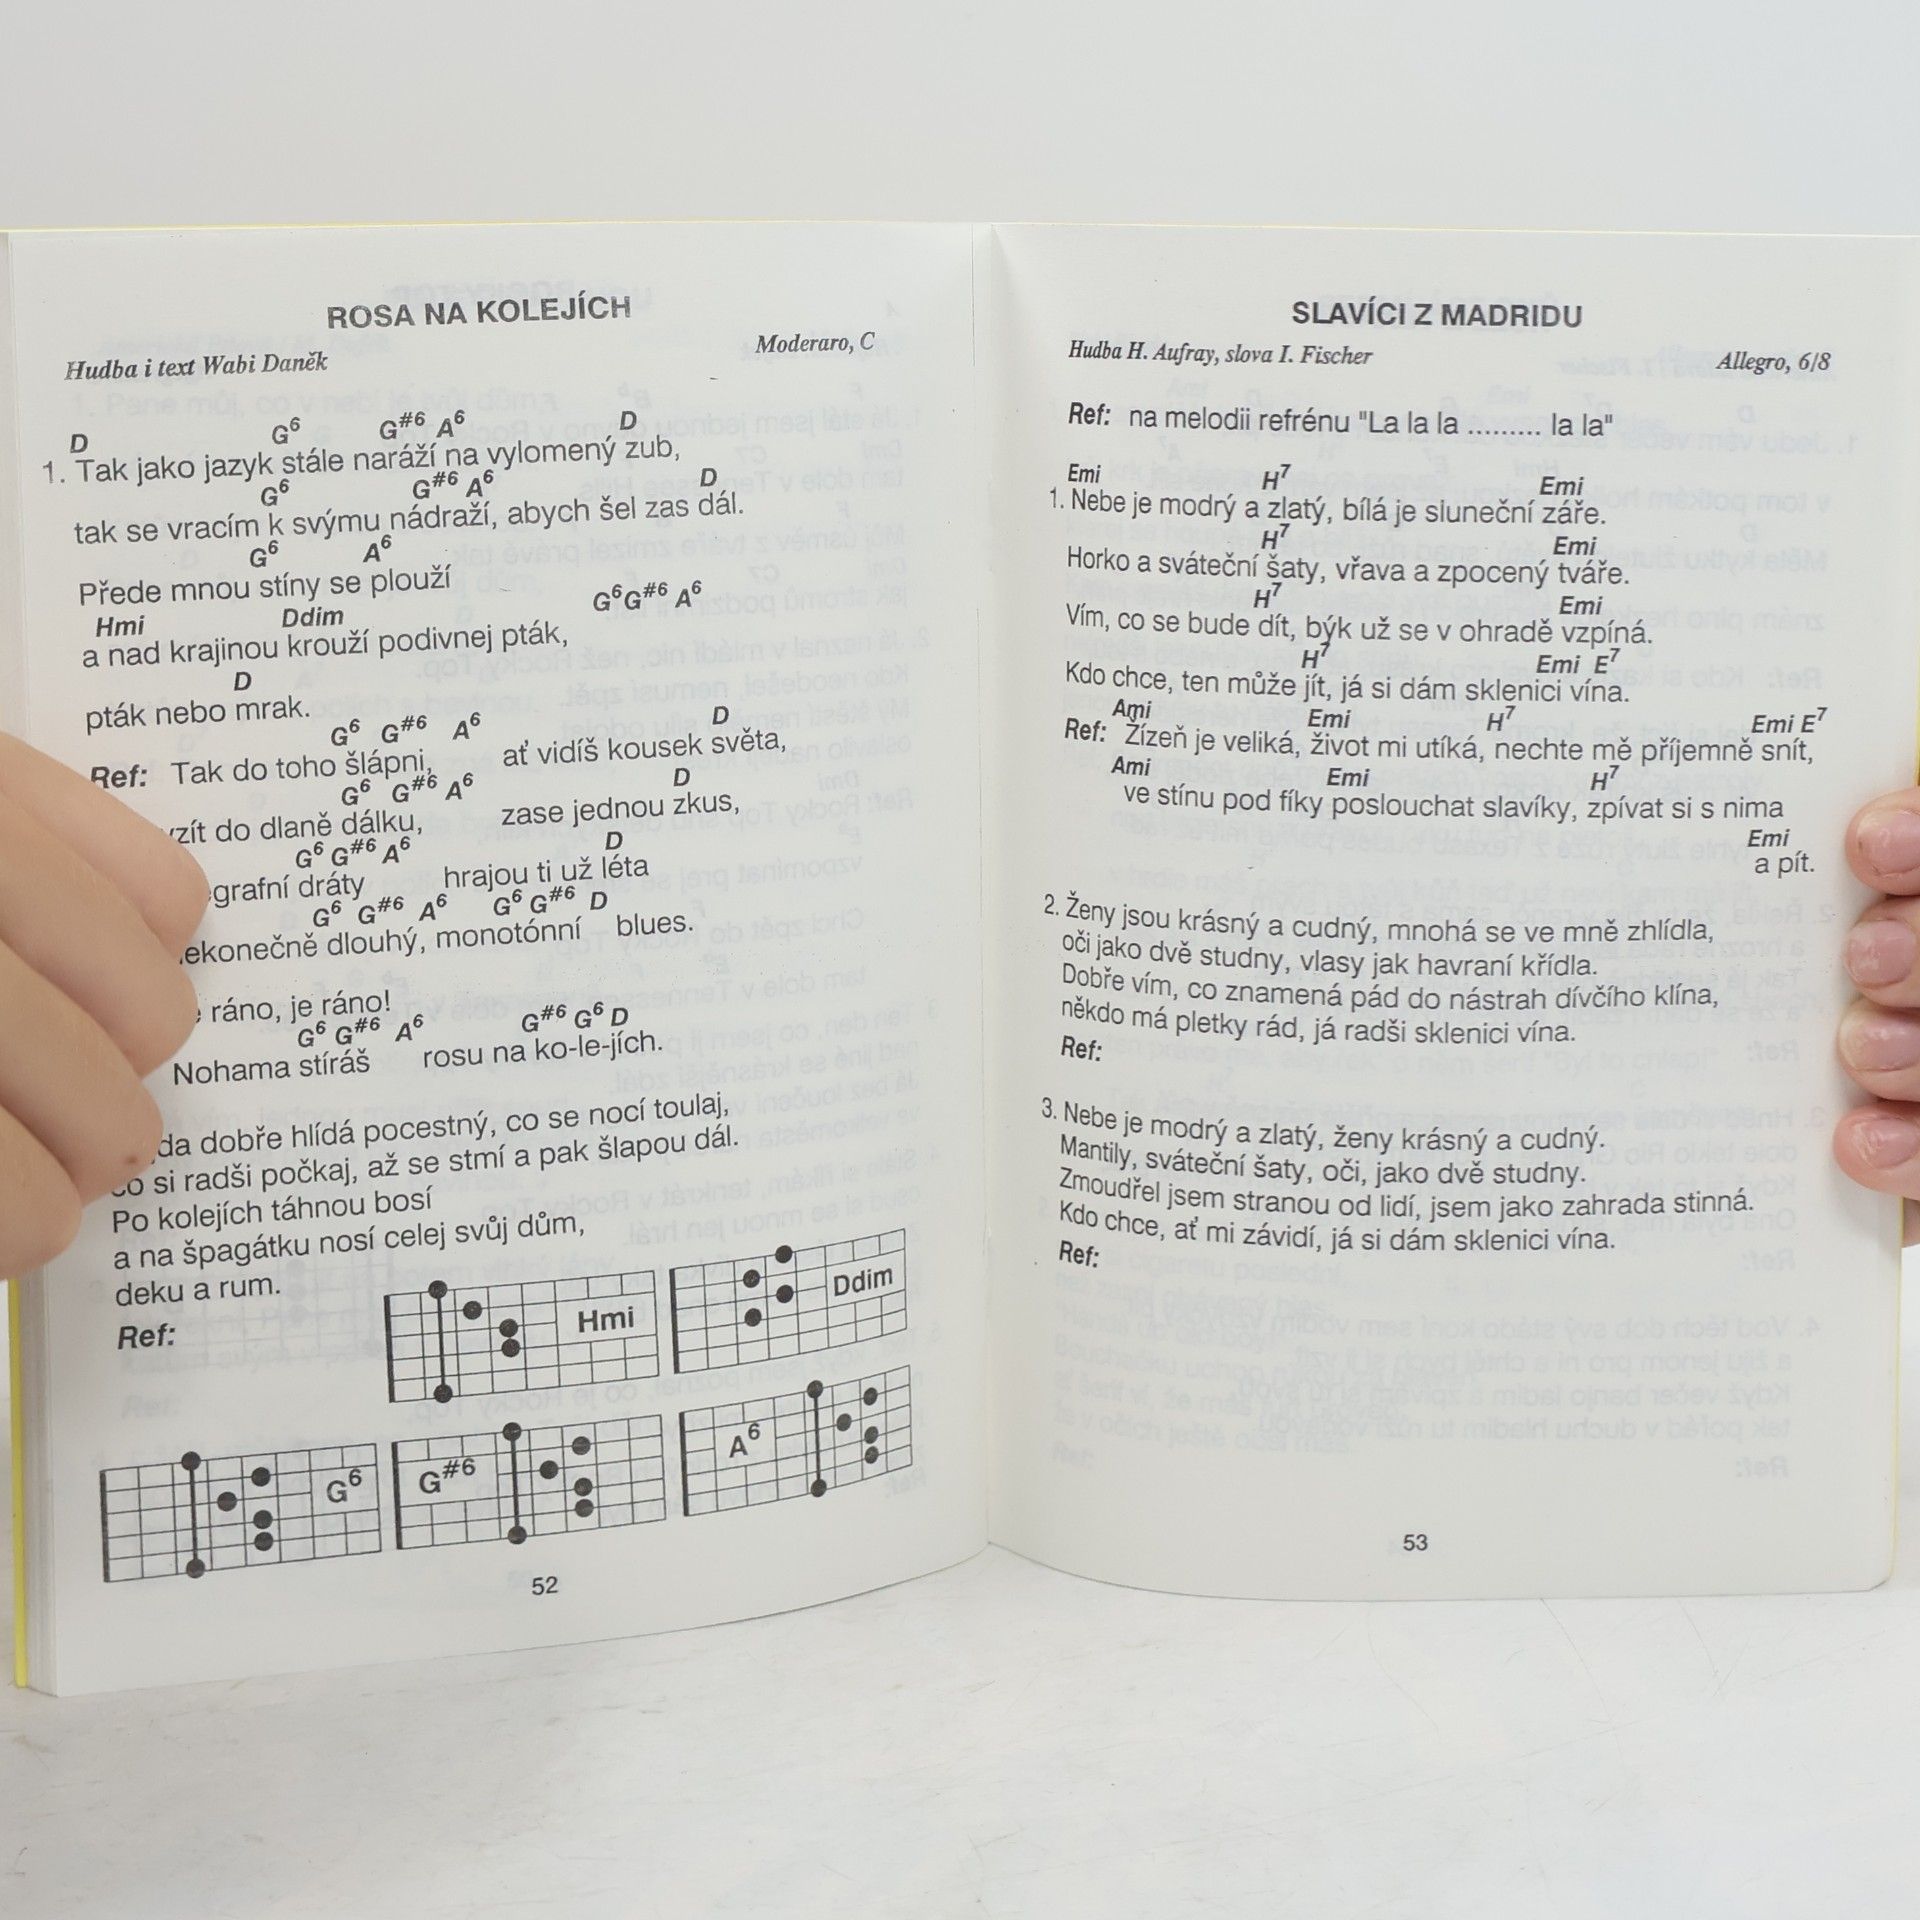 ROSA NA KOLEJÍCH
Hudba i text Wabi Daněk
Moderaro, C
D G6 G#6 A6 D
1. Tak jako jazyk stále naráží na vylomený zub,
G6 G#6 A6 D
tak se vracím k svýmu nádraží, abych šel zas dál.
G6 A6
Přede mnou stíny se plouží
Hmi Ddim G6 G#6 A6
a nad krajinou krouží podivnej pták,
D
pták nebo mrak.
G6 G#6 A6 D
Ref: Tak do toho šlápni, ať vidíš kousek světa,
G6 G#6 A6 D
vzít do dlaně dálku, zase jednou zkus,
G6 G#6 A6 D
egrafní dráty hrajou ti už léta
G6 G#6 A6 G6 G#6 D
ekonečně dlouhý, monotónní blues.
e ráno, je ráno!
G6 G#6 A6 G#6 G6 D
Nohama stíráš rosu na ko-le-jích.
da dobře hlídá pocestný, co se nocí toulaj,
co si radši počkaj, až se stmí a pak šlapou dál.
Po kolejích táhnou bosí
a na špagátku nosí celej svůj dům,
deku a rum.
Ref:
Hmi Ddim
G6 G#6 A6
52
SLAVÍCI Z MADRIDU
Hudba H. Aufray, slova I. Fischer
Allegro, 6/8
Ref: na melodii refrénu "La la la ......... la la"
Emi H7 Emi
1. Nebe je modrý a zlatý, bílá je sluneční záře.
H7 Emi
Horko a sváteční šaty, vřava a zpocený tváře.
H7 Emi
Vím, co se bude dít, býk už se v ohradě vzpíná.
H7 Emi E7
Kdo chce, ten může jít, já si dám sklenici vína.
Ami Emi H7 Emi E7
Ref: Žízeň je veliká, život mi utíká, nechte mě příjemně snít,
Ami Emi H7
ve stínu pod fíky poslouchat slavíky, zpívat si s nima
Emi
a pít.
2. Ženy jsou krásný a cudný, mnohá se ve mně zhlídla,
oči jako dvě studny, vlasy jak havraní křídla.
Dobře vím, co znamená pád do nástrah dívčího klína,
někdo má pletky rád, já radši sklenici vína.
Ref:
3. Nebe je modrý a zlatý, ženy krásný a cudný.
Mantily, sváteční šaty, oči, jako dvě studny.
Zmoudřel jsem stranou od lidí, jsem jako zahrada stinná.
Kdo chce, ať mi závidí, já si dám sklenici vína.
Ref:
53